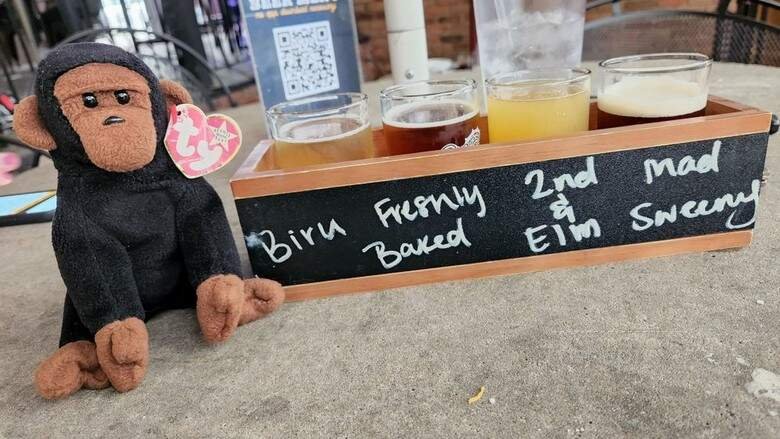 ty
Biru
Freshly
Baked
2nd
&
Elm
Mad
Sweeney